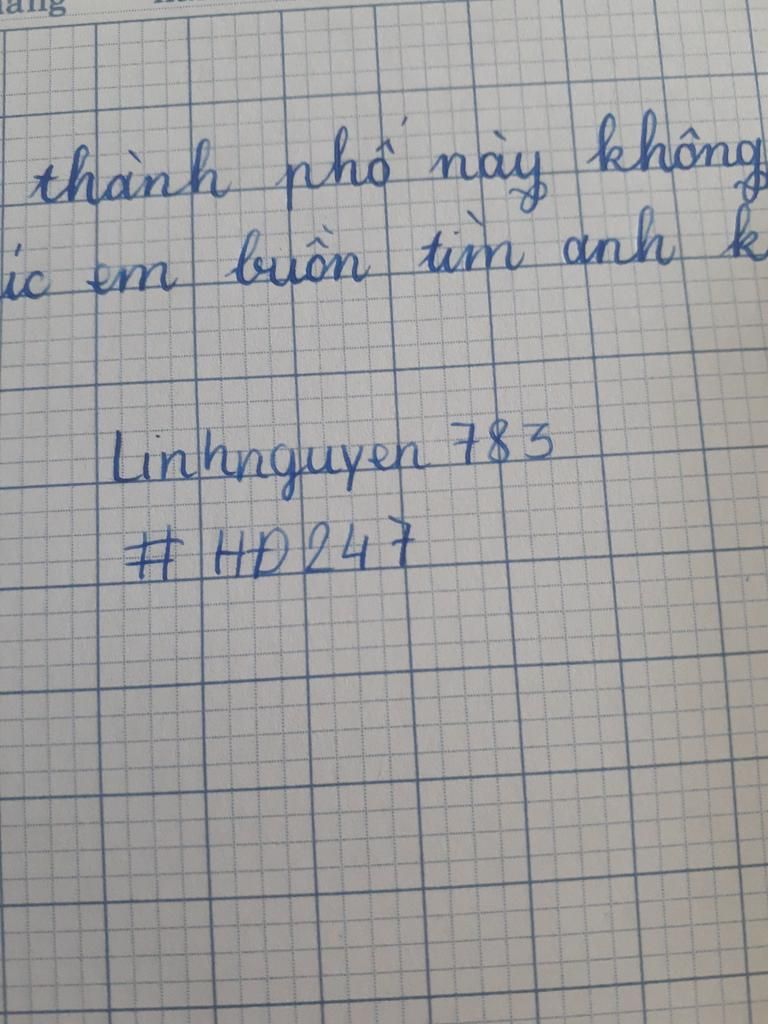 thành phố này không
em buồn tìm anh k
Linhnguyen 783
# HD247